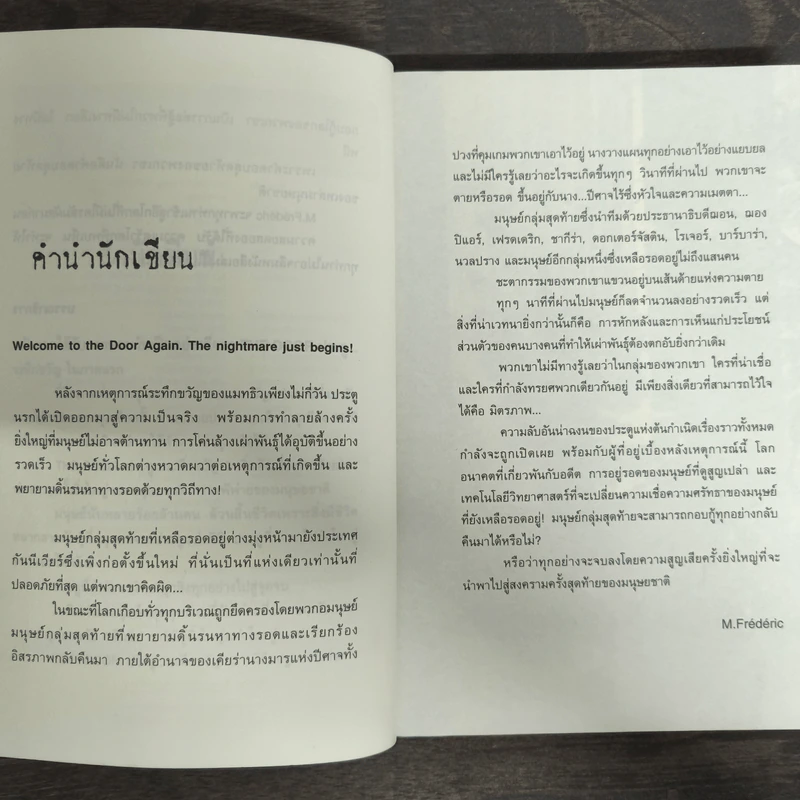 คำนำนักเขียน
Welcome to the Door Again. The nightmare just begins!
หลังจากเหตุการณ์ระทึกขวัญของแมทธิวเพียงไม่กี่วัน ประตู
นรกได้เปิดออกมาสู่ความเป็นจริง พร้อมการทำลายล้างครั้ง
ยิ่งใหญ่ที่มนุษย์ไม่อาจต้านทาน การโค่นล้างเผ่าพันธุ์ได้อุบัติขึ้นอย่าง
รวดเร็ว มนุษย์ทั่วโลกต่างหวาดผวาต่อเหตุการณ์ที่เกิดขึ้น และ
พยายามดิ้นรนหาทางรอดด้วยทุกวิถีทาง!
มนุษย์กลุ่มสุดท้ายที่เหลือรอดอยู่ต่างมุ่งหน้ามายังประเทศ
กันนีเวียร์ซึ่งเพิ่งก่อตั้งขึ้นใหม่ ที่นั่นเป็นที่แห่งเดียวเท่านั้นที่
ปลอดภัยที่สุด แต่พวกเขาคิดผิด...
ในขณะที่โลกเกือบทั่วทุกบริเวณถูกยึดครองโดยพวกอมนุษย์
มนุษย์กลุ่มสุดท้ายที่พยายามดิ้นรนหาทางรอดและเรียกร้อง
อิสรภาพกลับคืนมา ภายใต้อำนาจของเคียร่านางมารแห่งปีศาจทั้ง
ปวงที่คุมเกมพวกเขาเอาไว้อยู่ นางวางแผนทุกอย่างเอาไว้อย่างแยบยล
และไม่มีใครรู้เลยว่าอะไรจะเกิดขึ้นทุกๆ วินาทีที่ผ่านไป พวกเขาจะ
ตายหรือรอด ขึ้นอยู่กับนาง...ปีศาจไร้ซึ่งหัวใจและความเมตตา...
มนุษย์กลุ่มสุดท้ายซึ่งนำทีมด้วยประธานาธิบดีฌอน, ฌอง
ปิแอร์, เฟรดเดริก, ชากีร่า, ดอกเตอร์จัสติน, โรเจอร์, บาร์บาร่า,
นวลปราง และมนุษย์อีกกลุ่มหนึ่งซึ่งเหลือรอดอยู่ไม่ถึงแสนคน
ชะตากรรมของพวกเขาแขวนอยู่บนเส้นด้ายแห่งความตาย
ทุกๆ นาทีที่ผ่านไปมนุษย์ก็ลดจำนวนลงอย่างรวดเร็ว แต่
สิ่งที่น่าเวทนายิ่งกว่านั้นก็คือ การหักหลังและการเห็นแก่ประโยชน์
ส่วนตัวของคนบางคนที่ทำให้เผ่าพันธุ์ต้องตกอับยิ่งกว่าเดิม
พวกเขาไม่มีทางรู้เลยว่าในกลุ่มของพวกเขา ใครที่น่าเชื่อ
และใครที่กำลังทรยศพวกเดียวกันอยู่ มีเพียงสิ่งเดียวที่สามารถไว้ใจ
ได้คือ มิตรภาพ...
ความลับอันน่าฉงนของประตูแห่งต้นกำเนิดเรื่องราวทั้งหมด
กำลังจะถูกเปิดเผย พร้อมกับผู้ที่อยู่เบื้องหลังเหตุการณ์นี้ โลก
อนาคตที่เกี่ยวพันกับอดีต การอยู่รอดของมนุษย์ที่ดูสูญเปล่า และ
เทคโนโลยีวิทยาศาสตร์ที่จะเปลี่ยนความเชื่อความศรัทธาของมนุษย์
ที่ยังเหลือรอดอยู่! มนุษย์กลุ่มสุดท้ายจะสามารถกอบกู้ทุกอย่างกลับ
คืนมาได้หรือไม่?
หรือว่าทุกอย่างจะจบลงโดยความสูญเสียครั้งยิ่งใหญ่ที่จะ
นำพาไปสู่สงครามครั้งสุดท้ายของมนุษยชาติ
M.Frédéric